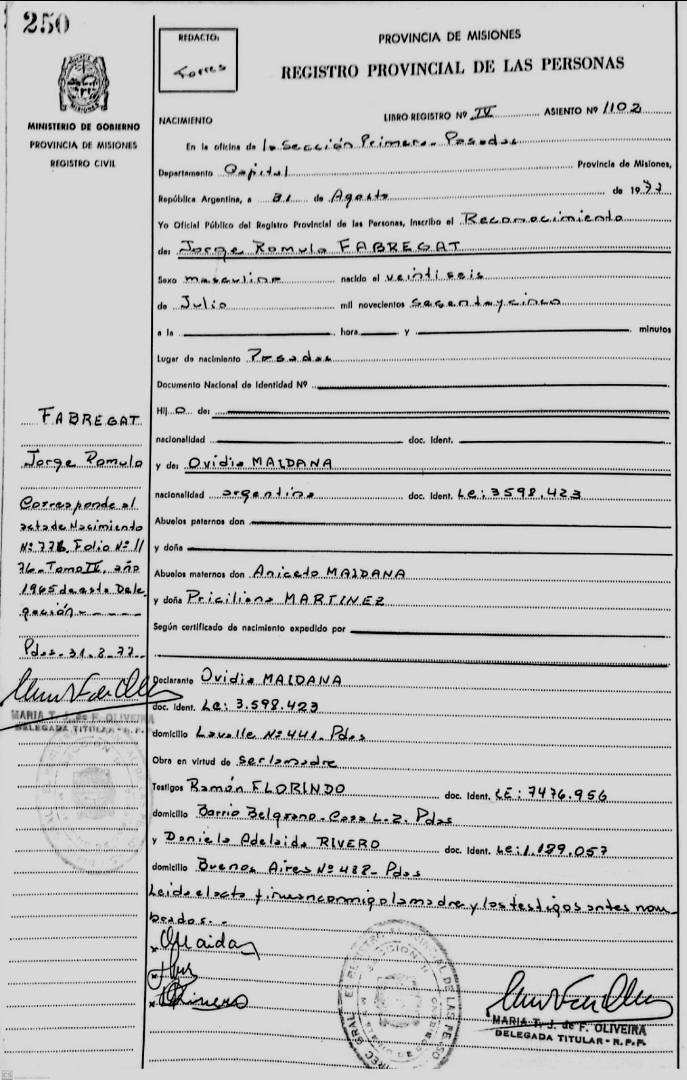 250
REDACTO:
Torres
PROVINCIA DE MISIONES
REGISTRO PROVINCIAL DE LAS PERSONAS
MISIONES
MINISTERIO DE GOBIERNO
PROVINCIA DE MISIONES
REGISTRO CIVIL
NACIMIENTO
LIBRO REGISTRO Nº IV ASIENTO Nº 1102
En la oficina de la Sección Primera - Posadas
Departamento Capital Provincia de Misiones,
República Argentina, a 31 de Agosto de 1977
Yo Oficial Público del Registro Provincial de las Personas, inscribo el Reconocimiento
de: Jorge Romulo FABREGAT
Sexo masculino nacido el veintiseis
de Julio mil novecientos sesentaycinco
a la hora y minutos
Lugar de nacimiento Posadas
Documento Nacional de Identidad Nº
Hij o de:
nacionalidad doc. Ident.
y de: Ovidia MAIDANA
nacionalidad argentina doc. Ident. Lc: 3598.423
Abuelos paternos don
y doña
Abuelos maternos don Aniceto MAIDANA
y doña Priciliana MARTINEZ
Según certificado de nacimiento expedido por
Declarante Ovidia MAIDANA
doc. Ident. Lc: 3.598.423
domicilio Lavalle Nº 441- Pdas
Obra en virtud de ser la madre
Testigos Ramón FLORINDO doc. Ident. LE: 7476.956
domicilio Barrio Belgrano - Casa L-2. Pdas
y Daniela Adelaida RIVERO doc. Ident. Lc: 1.189.057
domicilio Buenos Aires Nº 482- Pdas
Leida el acta firman conmigo la madre y los testigos antes nom-
brados.-
FABREGAT
Jorge Romulo
Corresponde al
acta de Nacimiento
Nº 776, Folio Nº 11
76- Tomo IV, año
1965 de esta Dele
gación-
Pdas- 31-8-77
MARIA T. J. de F. OLIVEIRA
DELEGADA TITULAR - R.P.P.
MARIA T. J. de F. OLIVEIRA
DELEGADA TITULAR - R.P.P.
CS